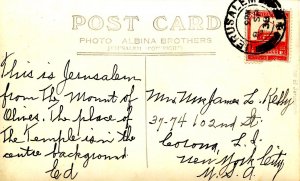 POST CARD
PHOTO ALBINA BROTHERS
JERUSALEM
JERUSALEM
This is Jerusalem
from The Mount of
Olives. The place of
The Temple is in the
centre background
Ed
Mr & Mrs James L. Kelly
37-74 102nd St.
Corona, L.I.
New York City
U.S.A.